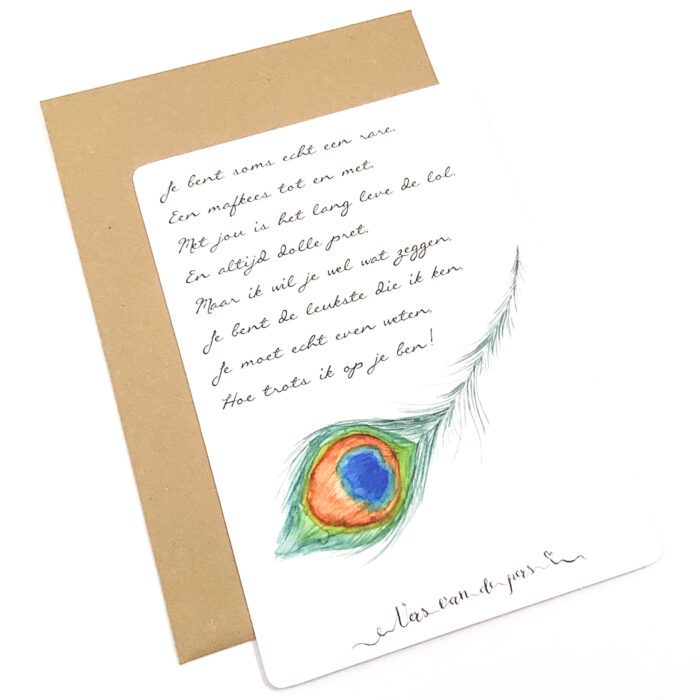 Je bent soms echt een rare,
Een mafkees tot en met.
Met jou is het lang leve de lol,
En altijd dolle pret.
Maar ik wil je wel wat zeggen,
Je bent de leukste die ik ken.
Je moet echt even weten,
Hoe trots ik op je ben!
Vers van de pers